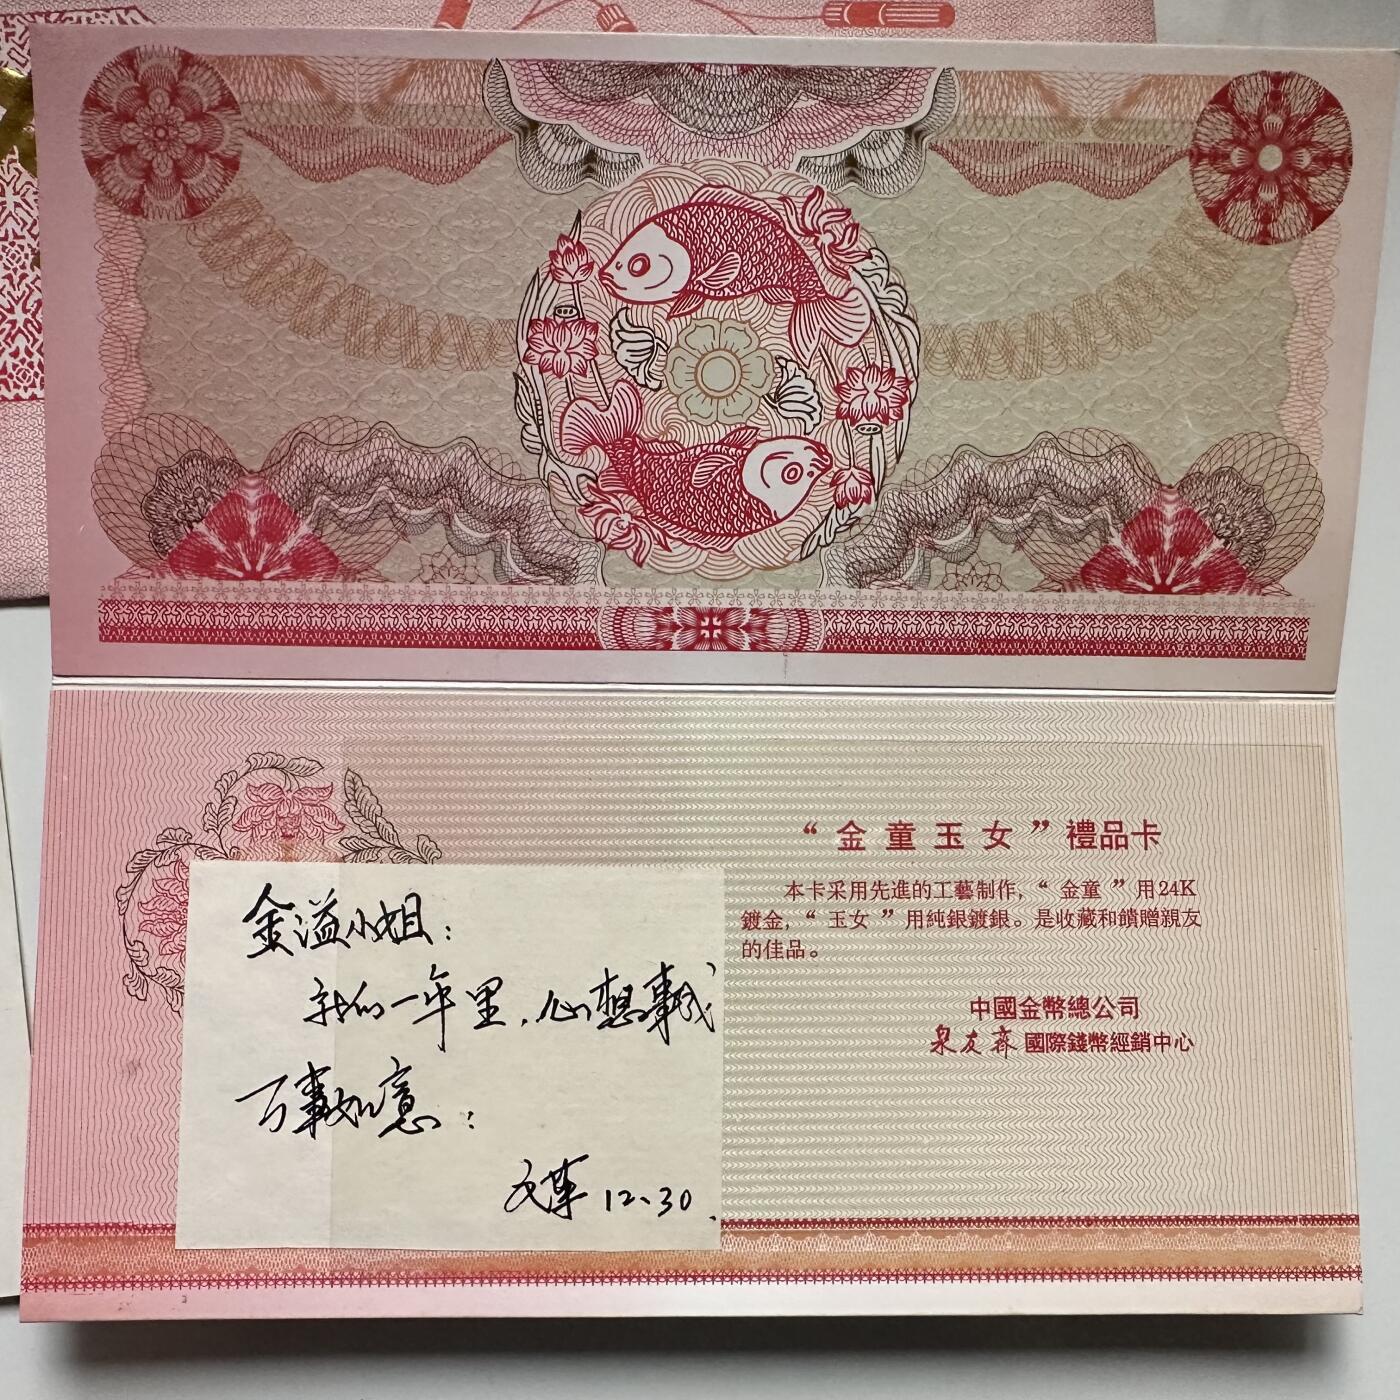 “金童玉女”禮品卡
本卡采用先進的工藝制作，“金童”用24K
鍍金，“玉女”用純銀鍍銀。是收藏和饋贈親友
的佳品。
中國金幣總公司
泉友齋國際錢幣經銷中心
金溢小姐：
新的一年里，心想事成
万事如意：
12.30.